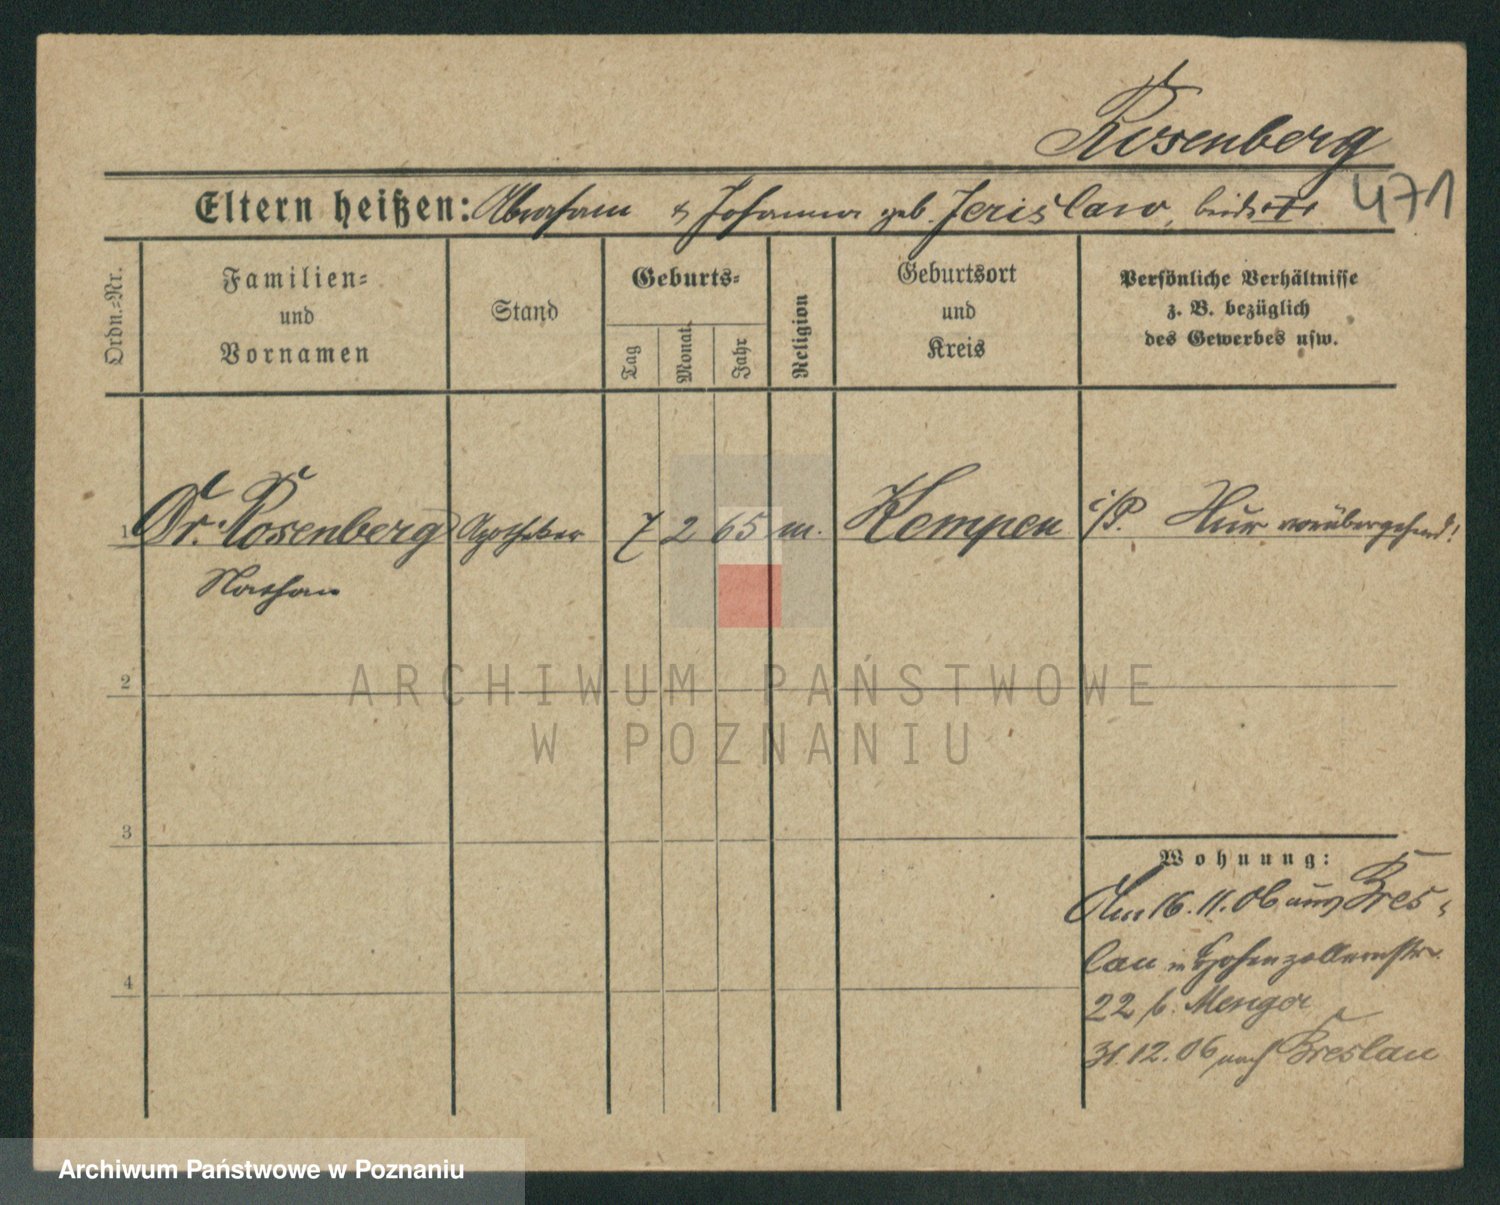 Rosenberg
471
Eltern heißen: Abraham & Johanna geb. Jerislaw, beide ††
Ordn.=Nr.
Familien=
und
Vornamen
Stand
Geburts=
Tag
Monat
Jahr
Religion
Geburtsort
und
Kreis
Persönliche Verhältnisse
z. B. bezüglich
des Gewerbes usw.
1 Dr. Rosenberg Apotheker 7 2 65 m. Kempen i/P. Nur vorübergehend!
Nathan
2
ARCHIWUM PAŃSTWOWE
W POZNANIU
3
Wohnung:
Am 16.11.06 aus Bres-
lau in Hohenzollernstr.
22 b.
4
31.12.06 nach Breslau
Archiwum Państwowe w Poznaniu